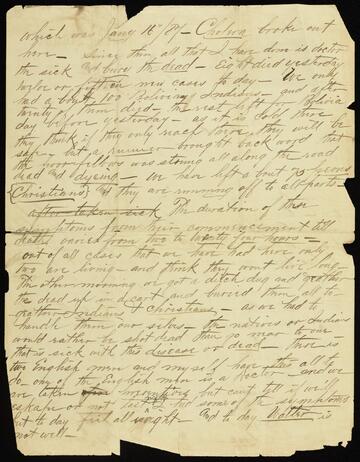 which was Jany 16th /87 - Cholera broke out
here - Since then all that I have done is doctor
the sick and bury the dead - Eight died yesterday
twelve or fifteen new cases to day - We only
had about 100 living Indians - and after
twenty of them died - the rest left for Bolivia
day before yesterday - as it is cold there
they think if they only reach there they will be
safe - but a runner brought back word that
the poor fellows was strung all along the road
dead and dying - We have left about 25 peons
(Christians) and they are running off to all parts -
after taken sick The duration of these
symptoms from their commencement till
death varies from two to twenty four hours -
out of all cases that we have had here only
two are living - and think they wont live long
The other morning we got a ditch dug and
the dead up in a cart and buried them all to-
gether Indians & Christians - as we had to
handle them our selves - the natives or Indians
would rather be shot dead than go near to one
that is sick with this disease or dead - There is
two English men and my self have this all to
do - one of the English men is a Doctor - and we
are taken every thing but can't tell if will
escape or not I felt some of the symptoms
but to day feel all right - and to day Walter is
not well -